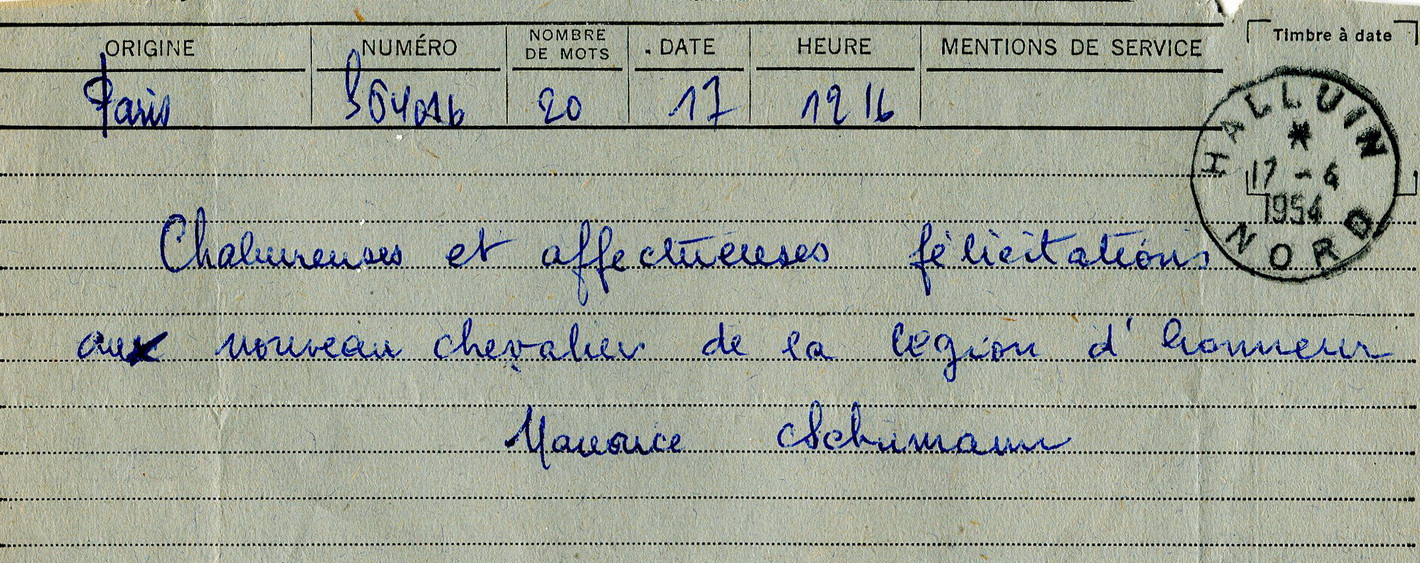 ORIGINE NUMÉRO NOMBRE DE MOTS DATE HEURE MENTIONS DE SERVICE Timbre à date
Paris 20 17 12 16
HALLUIN
17 - 6
1954
NORD
Chaleureuses et affectueuses félicitations
au nouveau chevalier de la légion d'honneur
Maurice Schumann